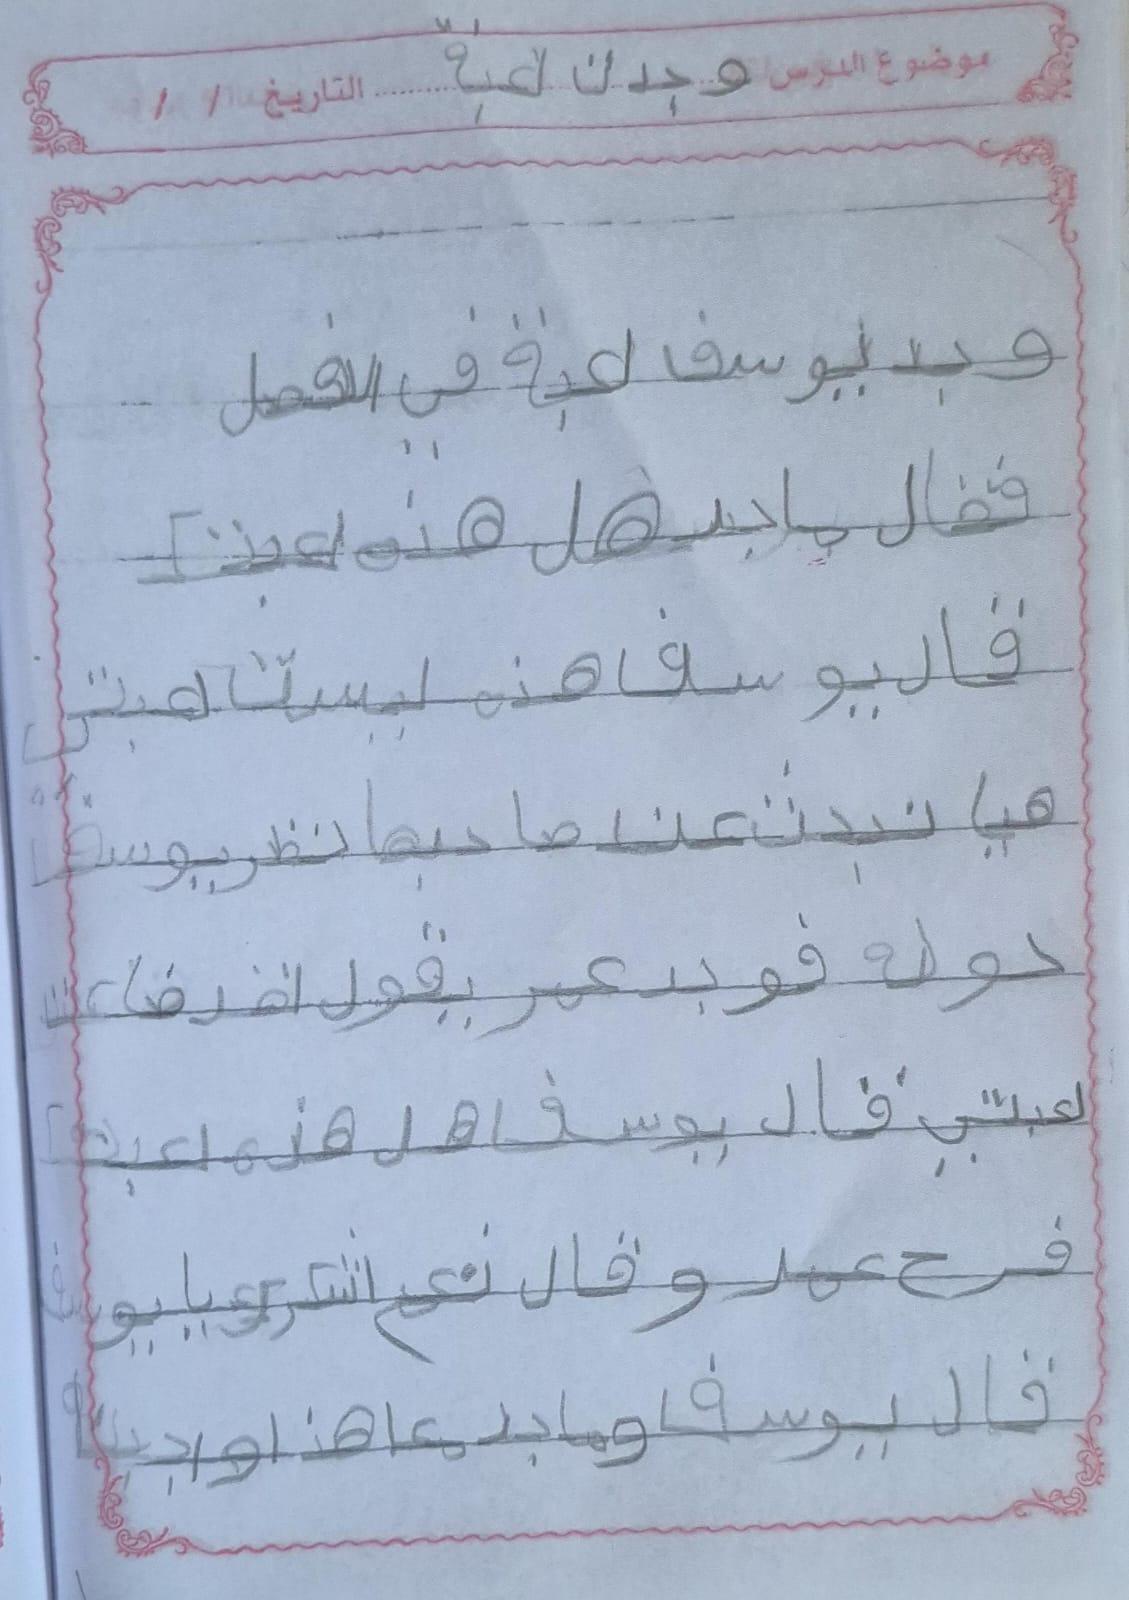 موضوع الدرس وجدت لعبة التاريخ / /
وجد يوسف لعبة في الفصل
فقال ياجد هل هذه لعبت
قال يوسفا هذه ليست لعبتي
هيا نبحث عن صاحبها نظر يوسف
حوله فوجد عمر يقول اضاعت
لعبتي قال يوسفا هل هذه لعبت
فرح عمر وقال نعم اشكرك يا يوسف
قال يوسفا وماجد